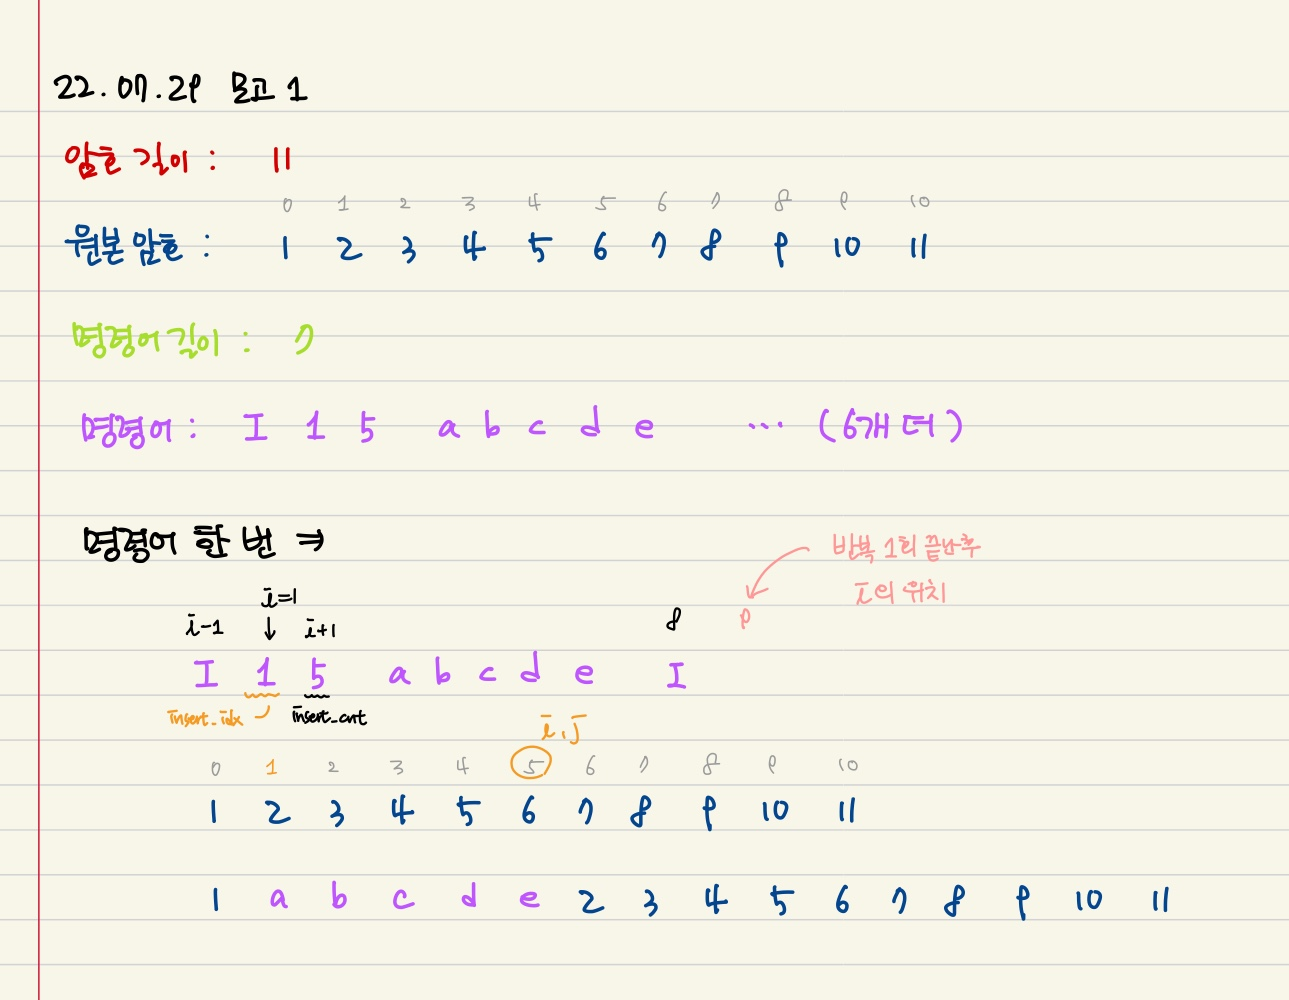 22.07.29 모고 1
암호 길이 : 11
0 1 2 3 4 5 6 7 8 9 10
원본 암호 : 1 2 3 4 5 6 7 8 9 10 11
명령어 길이 : 7
명령어 : I 1 5 a b c d e ... (6개 더)
명령어 한 번 ⇒
반복 1회 끝난후
i의 위치
i=1
i-1 ↓ i+1 8 9
I 1 5 a b c d e I
insert_idx insert_cnt
i,j
0 1 2 3 4 5 6 7 8 9 10
1 2 3 4 5 6 7 8 9 10 11
1 a b c d e 2 3 4 5 6 7 8 9 10 11